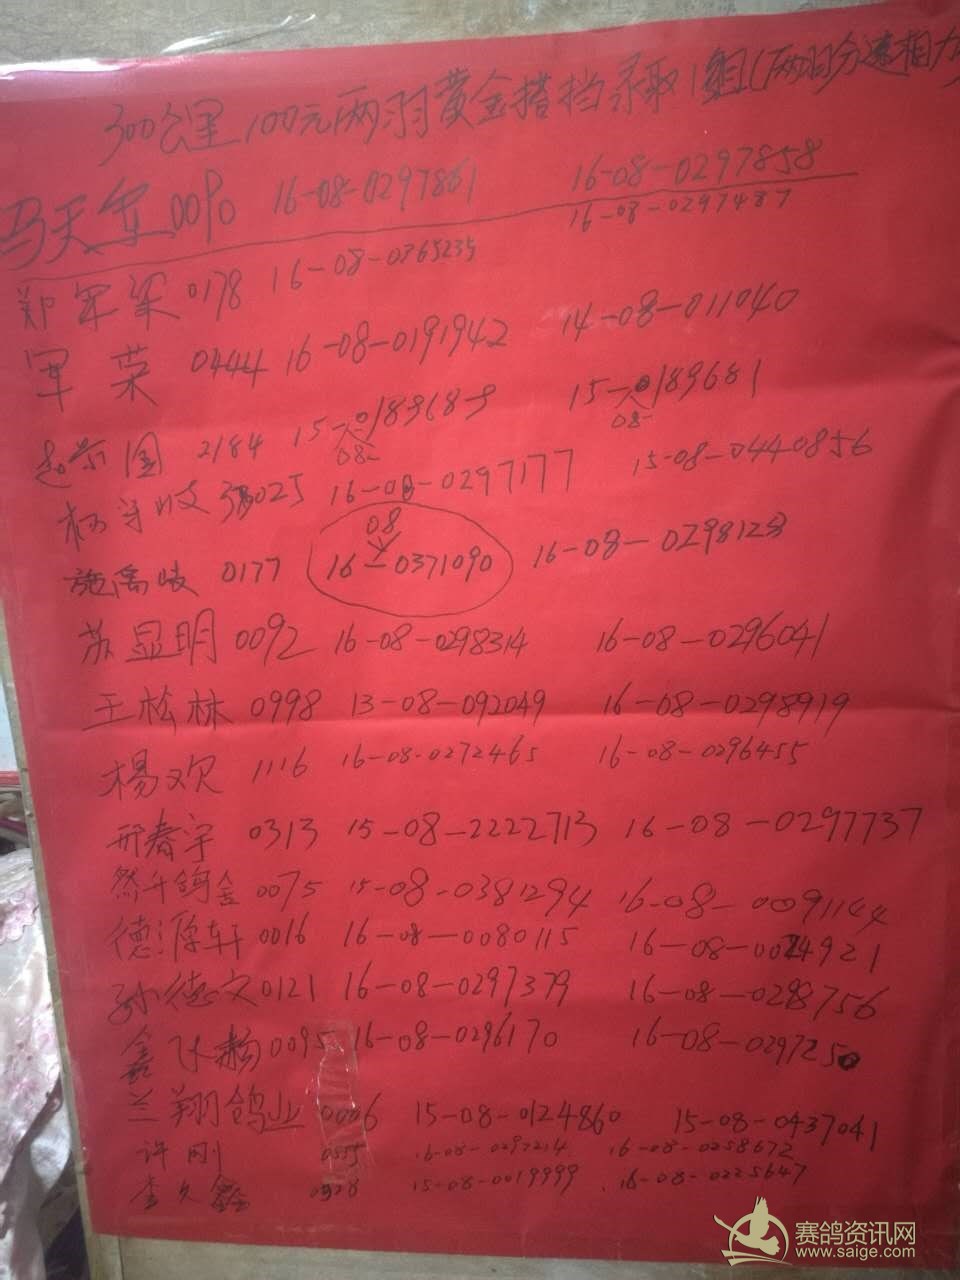 300公里100元两羽黄金搭挡录取1组(两羽分速相加
马天军0090 16-08-0297861 16-08-0297858
郑军梁0178 16-08-0365235 16-08-0297487
军荣 0444 16-08-0191942 14-08-011040
国 2184 15-08-0189689 15-08-0189681
025 16-08-0297177 15-08-0440856
施禹岐 0177 16-08-0371090 16-08-0298123
苏显明 0092 16-08-0298314 16-08-0296041
王松林 0998 13-08-092049 16-08-0298919
杨欢 1116 16-08-0272465 16-08-0296455
邢春宇 0313 15-08-2222713 16-08-0297737
然千鸽舍 0075 15-08-0381294 16-08-0091144
德源轩 0016 16-08-0080115 16-08-0024921
孙德文0121 16-08-0297379 16-08-0298756
鑫飞翔 0095 16-08-0296170 16-08-0297250
兰翔鸽业 0006 15-08-0124860 15-08-0437041
许刚 0555 16-08-0297214 16-08-0258672
李久鑫 0328 15-08-0019999 16-08-0225647
赛鸽资讯网
www.saige.com